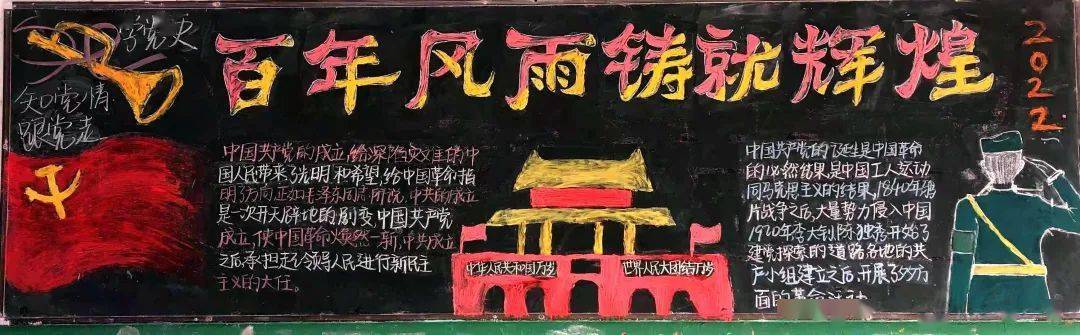 学党史
知党情
跟党走
百年风雨铸就辉煌
2022
中国共产党的成立,给深陷灾难的中
国人民带来了光明和希望,给中国革命指
明了方向正如毛泽东同志所说,中共的成立
是一次开天辟地的剧变 中国共产党
成立,使中国革命焕然一新,中共成立
之后,承担起了领导人民进行新民主
主义的大任。
中华人民共和国万岁
世界人民大团结万岁
中国共产党的诞生是中国革命
的必然结果,是中国工人运动
同马克思主义的结果,1840年鸦
片战争之后,大量势力侵入中国
1920年李大钊,陈独秀开始了
建党探索的道路各地的共
产小组建立之后,开展了多方
面的革命活动